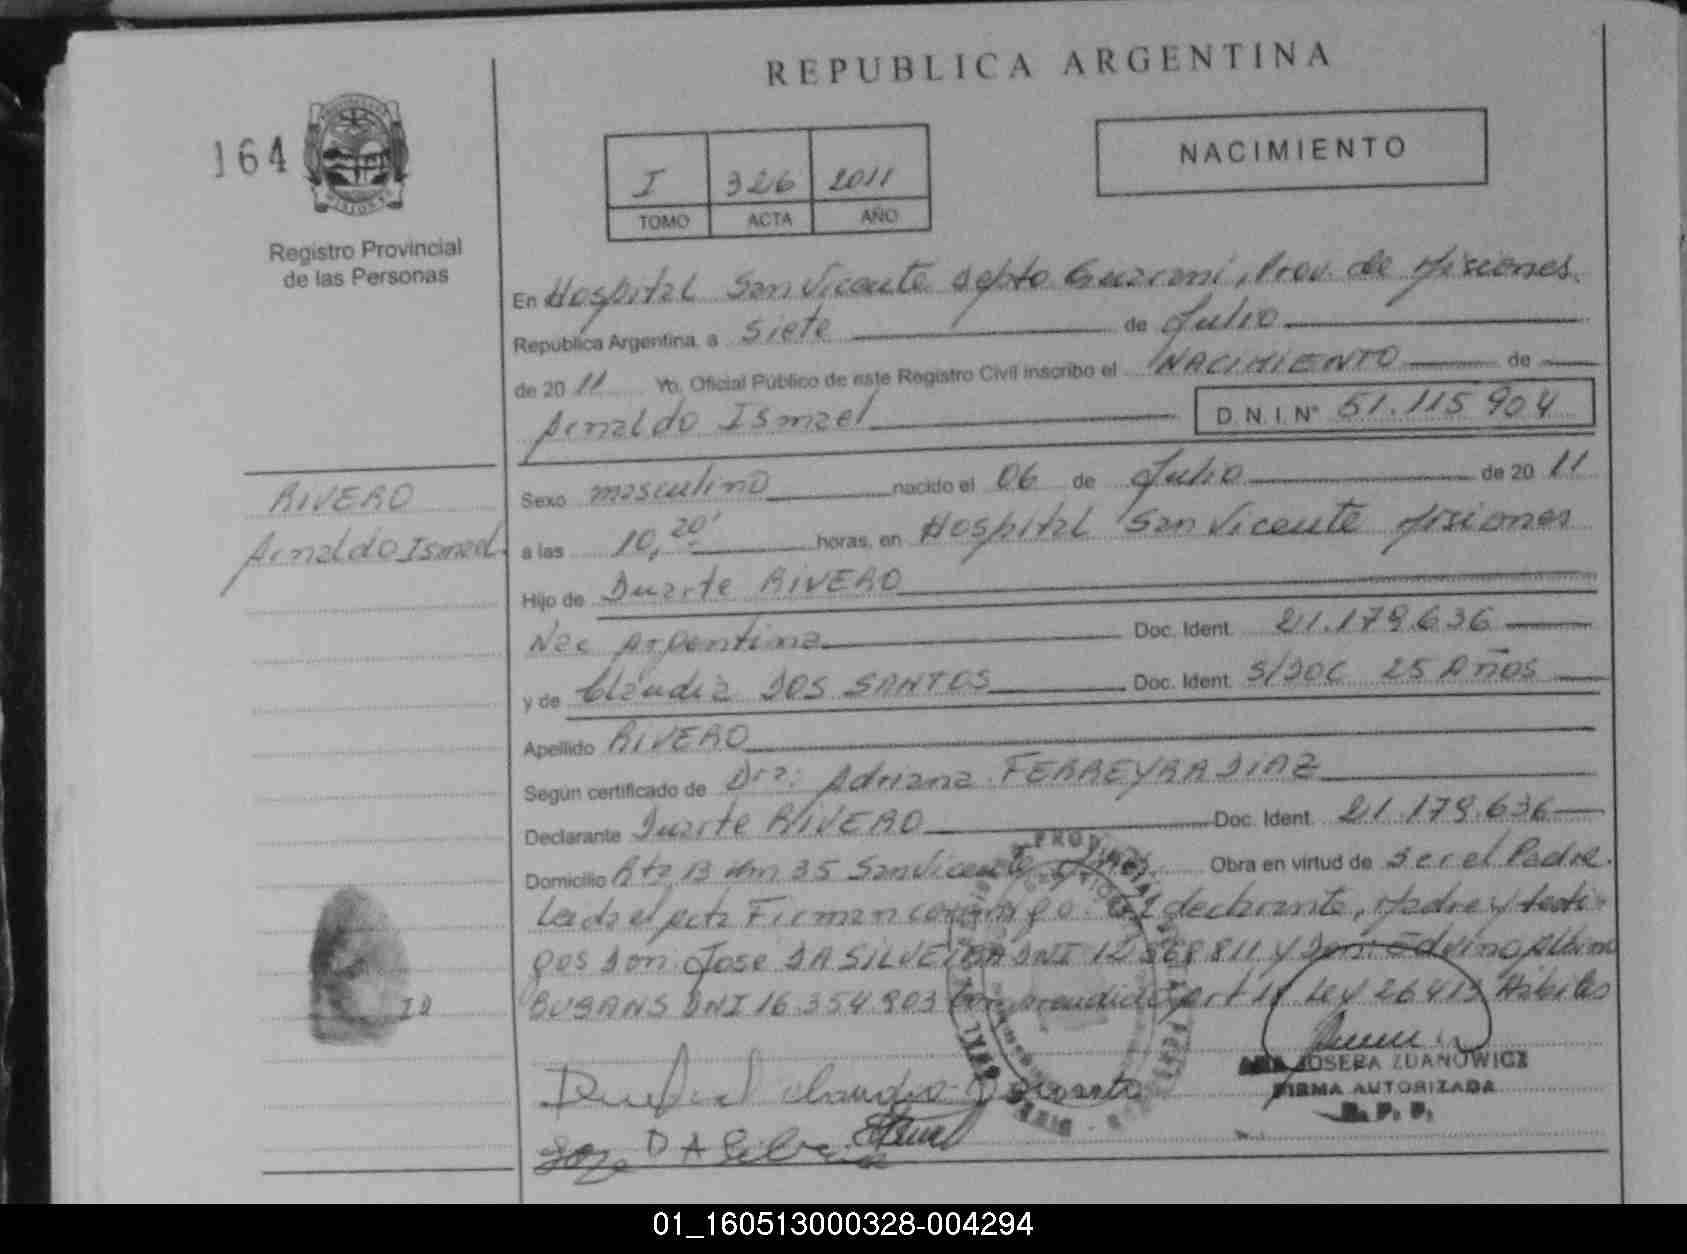 REPUBLICA ARGENTINA
164
NACIMIENTO
I 326 2011
TOMO ACTA AÑO
Registro Provincial
de las Personas
En Hospital San Vicente Depto Guarani, Prov. de Misiones.
Republica Argentina, a Siete de Julio
de 2011 Yo, Oficial Público de este Registro Civil inscribo el NACIMIENTO de
Arnaldo Ismael D. N. I. N° 51.115 904
RIVERO
Arnaldo Ismael
Sexo masculino nacido el 06 de Julio de 2011
a las 10,20' horas, en Hospital San Vicente Misiones
Hijo de Duarte RIVERO
Nac Argentina Doc. Ident. 21.179.636
y de Claudia DOS SANTOS Doc. Ident. S/DOC 25 Años
Apellido RIVERO
Según certificado de Dra: Adriana FERREYRA DIAZ
Declarante Duarte RIVERO Doc. Ident. 21.179.636
Domicilio Rta 13 Km 35 San Vicente Obra en virtud de ser el Padre.
Leida el acta Firman conmigo el declarante, Madre y testi-
gos Don Jose DA SILVEIRA DNI 12 568 811 y Don Edvino Albino
BUBANS DNI 16.354.903 Comprendido Art 11 Ley 26413 Habiles
ID
Claudia Duarte
JOSEFA ZDANOWICZ
FIRMA AUTORIZADA
R. P. P.
Jose DA Silveira
01_160513000328-004294